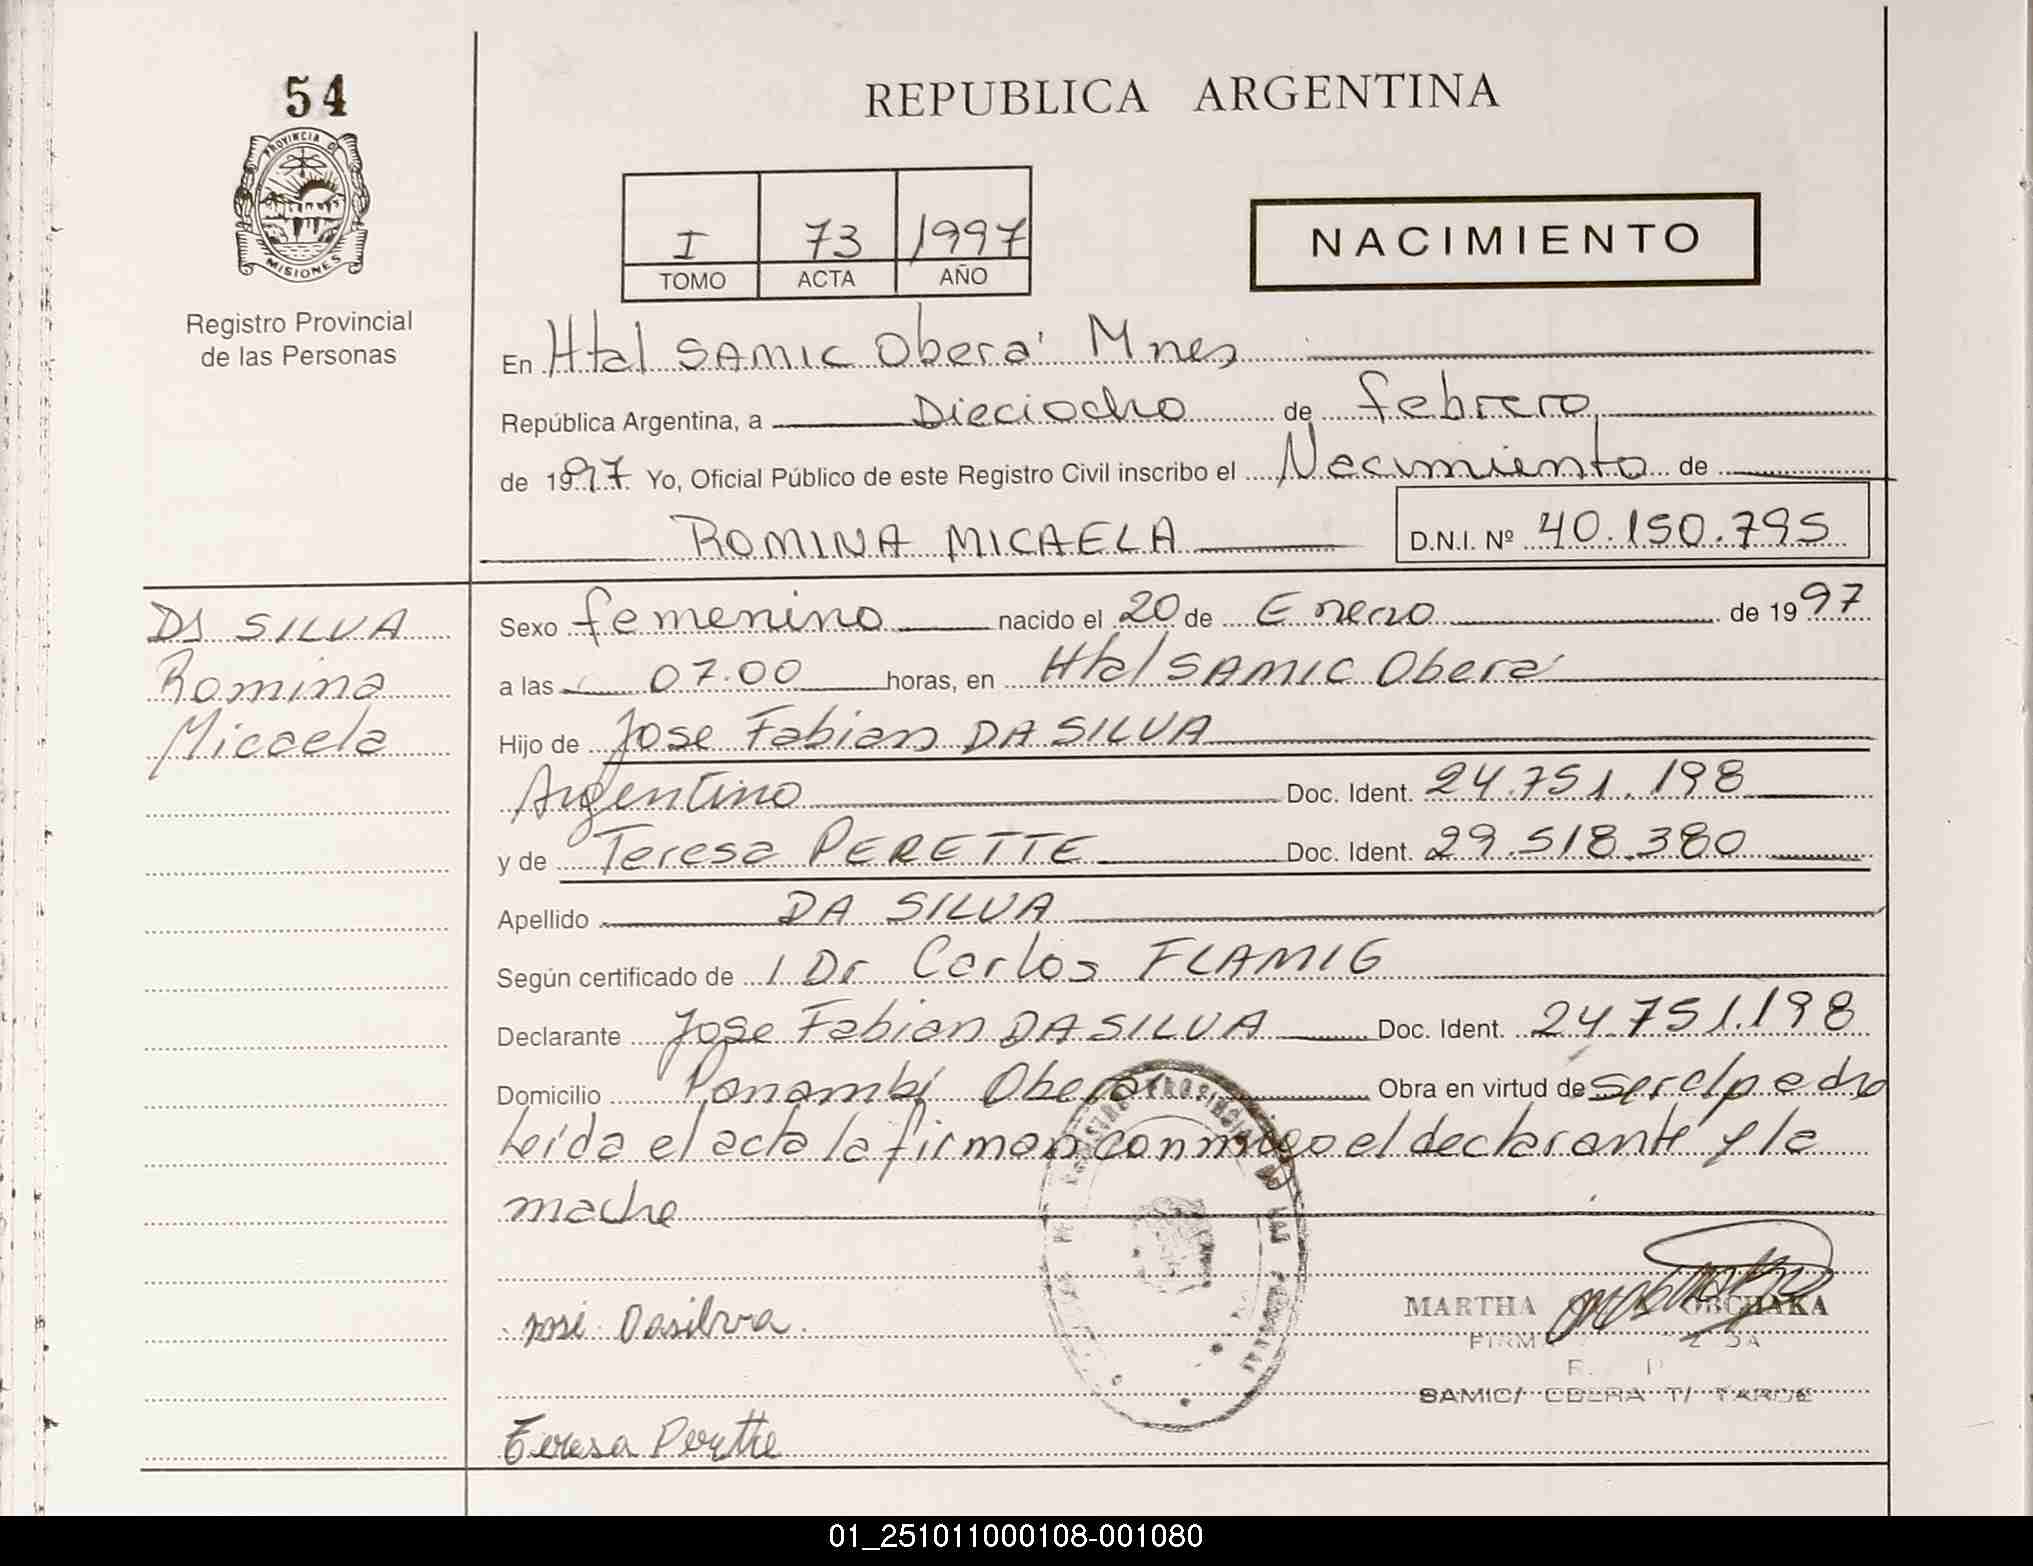 54
PROVINCIA DE
MISIONES
Registro Provincial
de las Personas
REPUBLICA ARGENTINA
I 73 1997
TOMO ACTA AÑO
NACIMIENTO
En Htal SAMIC Oberá Mnes
República Argentina, a Dieciocho de febrero
de 1997 Yo, Oficial Público de este Registro Civil inscribo el Nacimiento de
ROMINA MICAELA D.N.I. Nº 40.150.795
DA SILVA
Romina
Micaela
Sexo femenino nacido el 20 de Enero de 1997
a las 07.00 horas, en Htal SAMIC Oberá
Hijo de Jose Fabian DA SILVA
Argentino Doc. Ident. 24.751.198
y de Teresa PERETTE Doc. Ident. 29.518.380
Apellido DA SILVA
Según certificado de l Dr Carlos FLAMIG
Declarante Jose Fabian DA SILVA Doc. Ident. 24.751.198
Domicilio Panambí Oberá Obra en virtud de ser el padre
Leída el acta la firman conmigo el declarante y la
madre
José Dasilva
MARTHA
SAMIC/ OBERA T/ TARDE
Teresa Perette
01_251011000108-001080